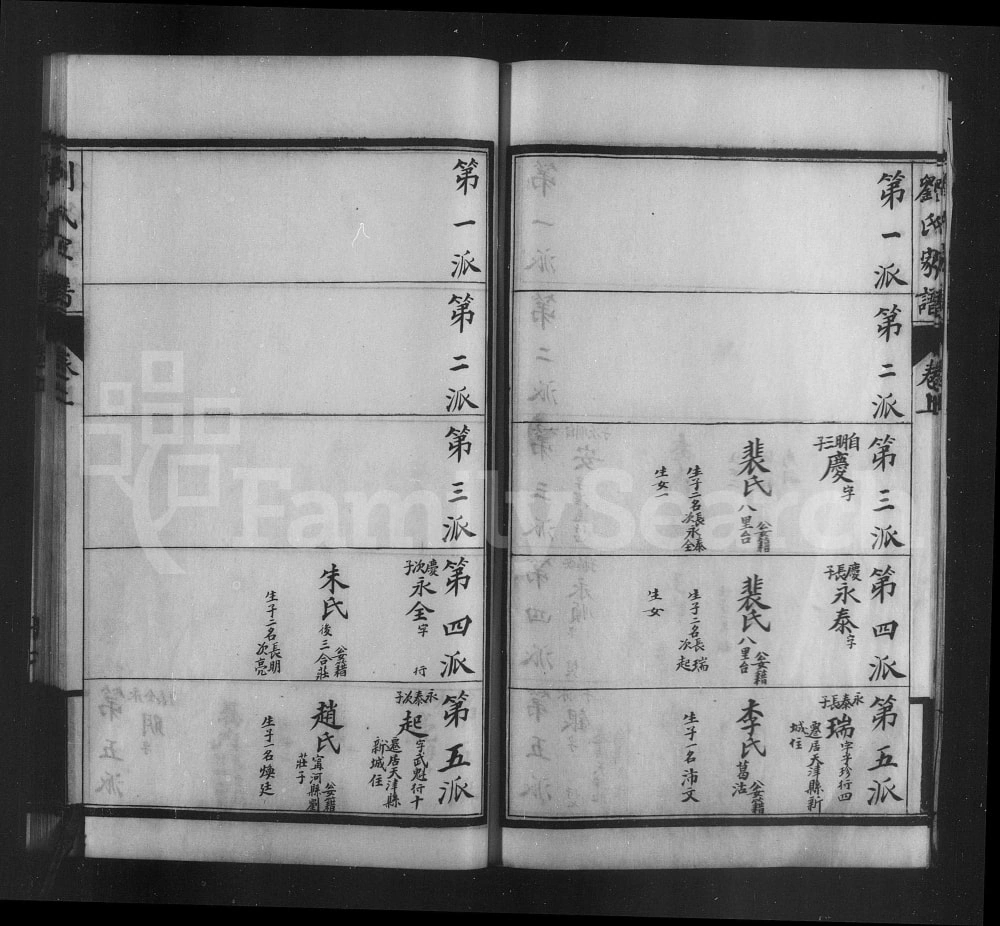 劉氏家譜
卷
第一派
第二派
第三派
自明三子
慶字
裴氏
公籍
八里台
生子二名長永泰
次永全
生女一
第四派
慶長子
永泰字
裴氏
公籍
八里台
生子二名長瑞
次起
生女
第五派
永泰長子
瑞字子珍行四
遷居天津縣新
城住
李氏
公籍
葛沽
生子一名沛文
第一派
第二派
第三派
第四派
慶次子
永全字 行
朱氏
公籍
後三合莊
生子二名長明
次亮
第五派
永泰次子
起字武魁行十
遷居天津縣
新城住
趙氏
公籍
甯河縣劉
莊子
生子一名煥廷
FamilySearch